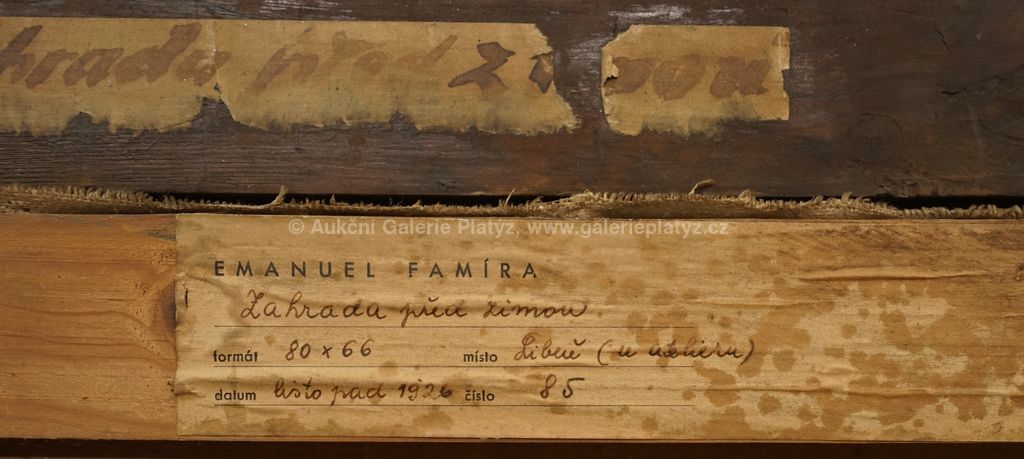 hrada před z mou
© Aukční Galerie Platýz, www.galerieplatyz.cz
EMANUEL FAMÍRA
Zahrada před zimou
formát 80 x 66 místo Libeň (u atelieru)
datum listopad 1926 číslo 85